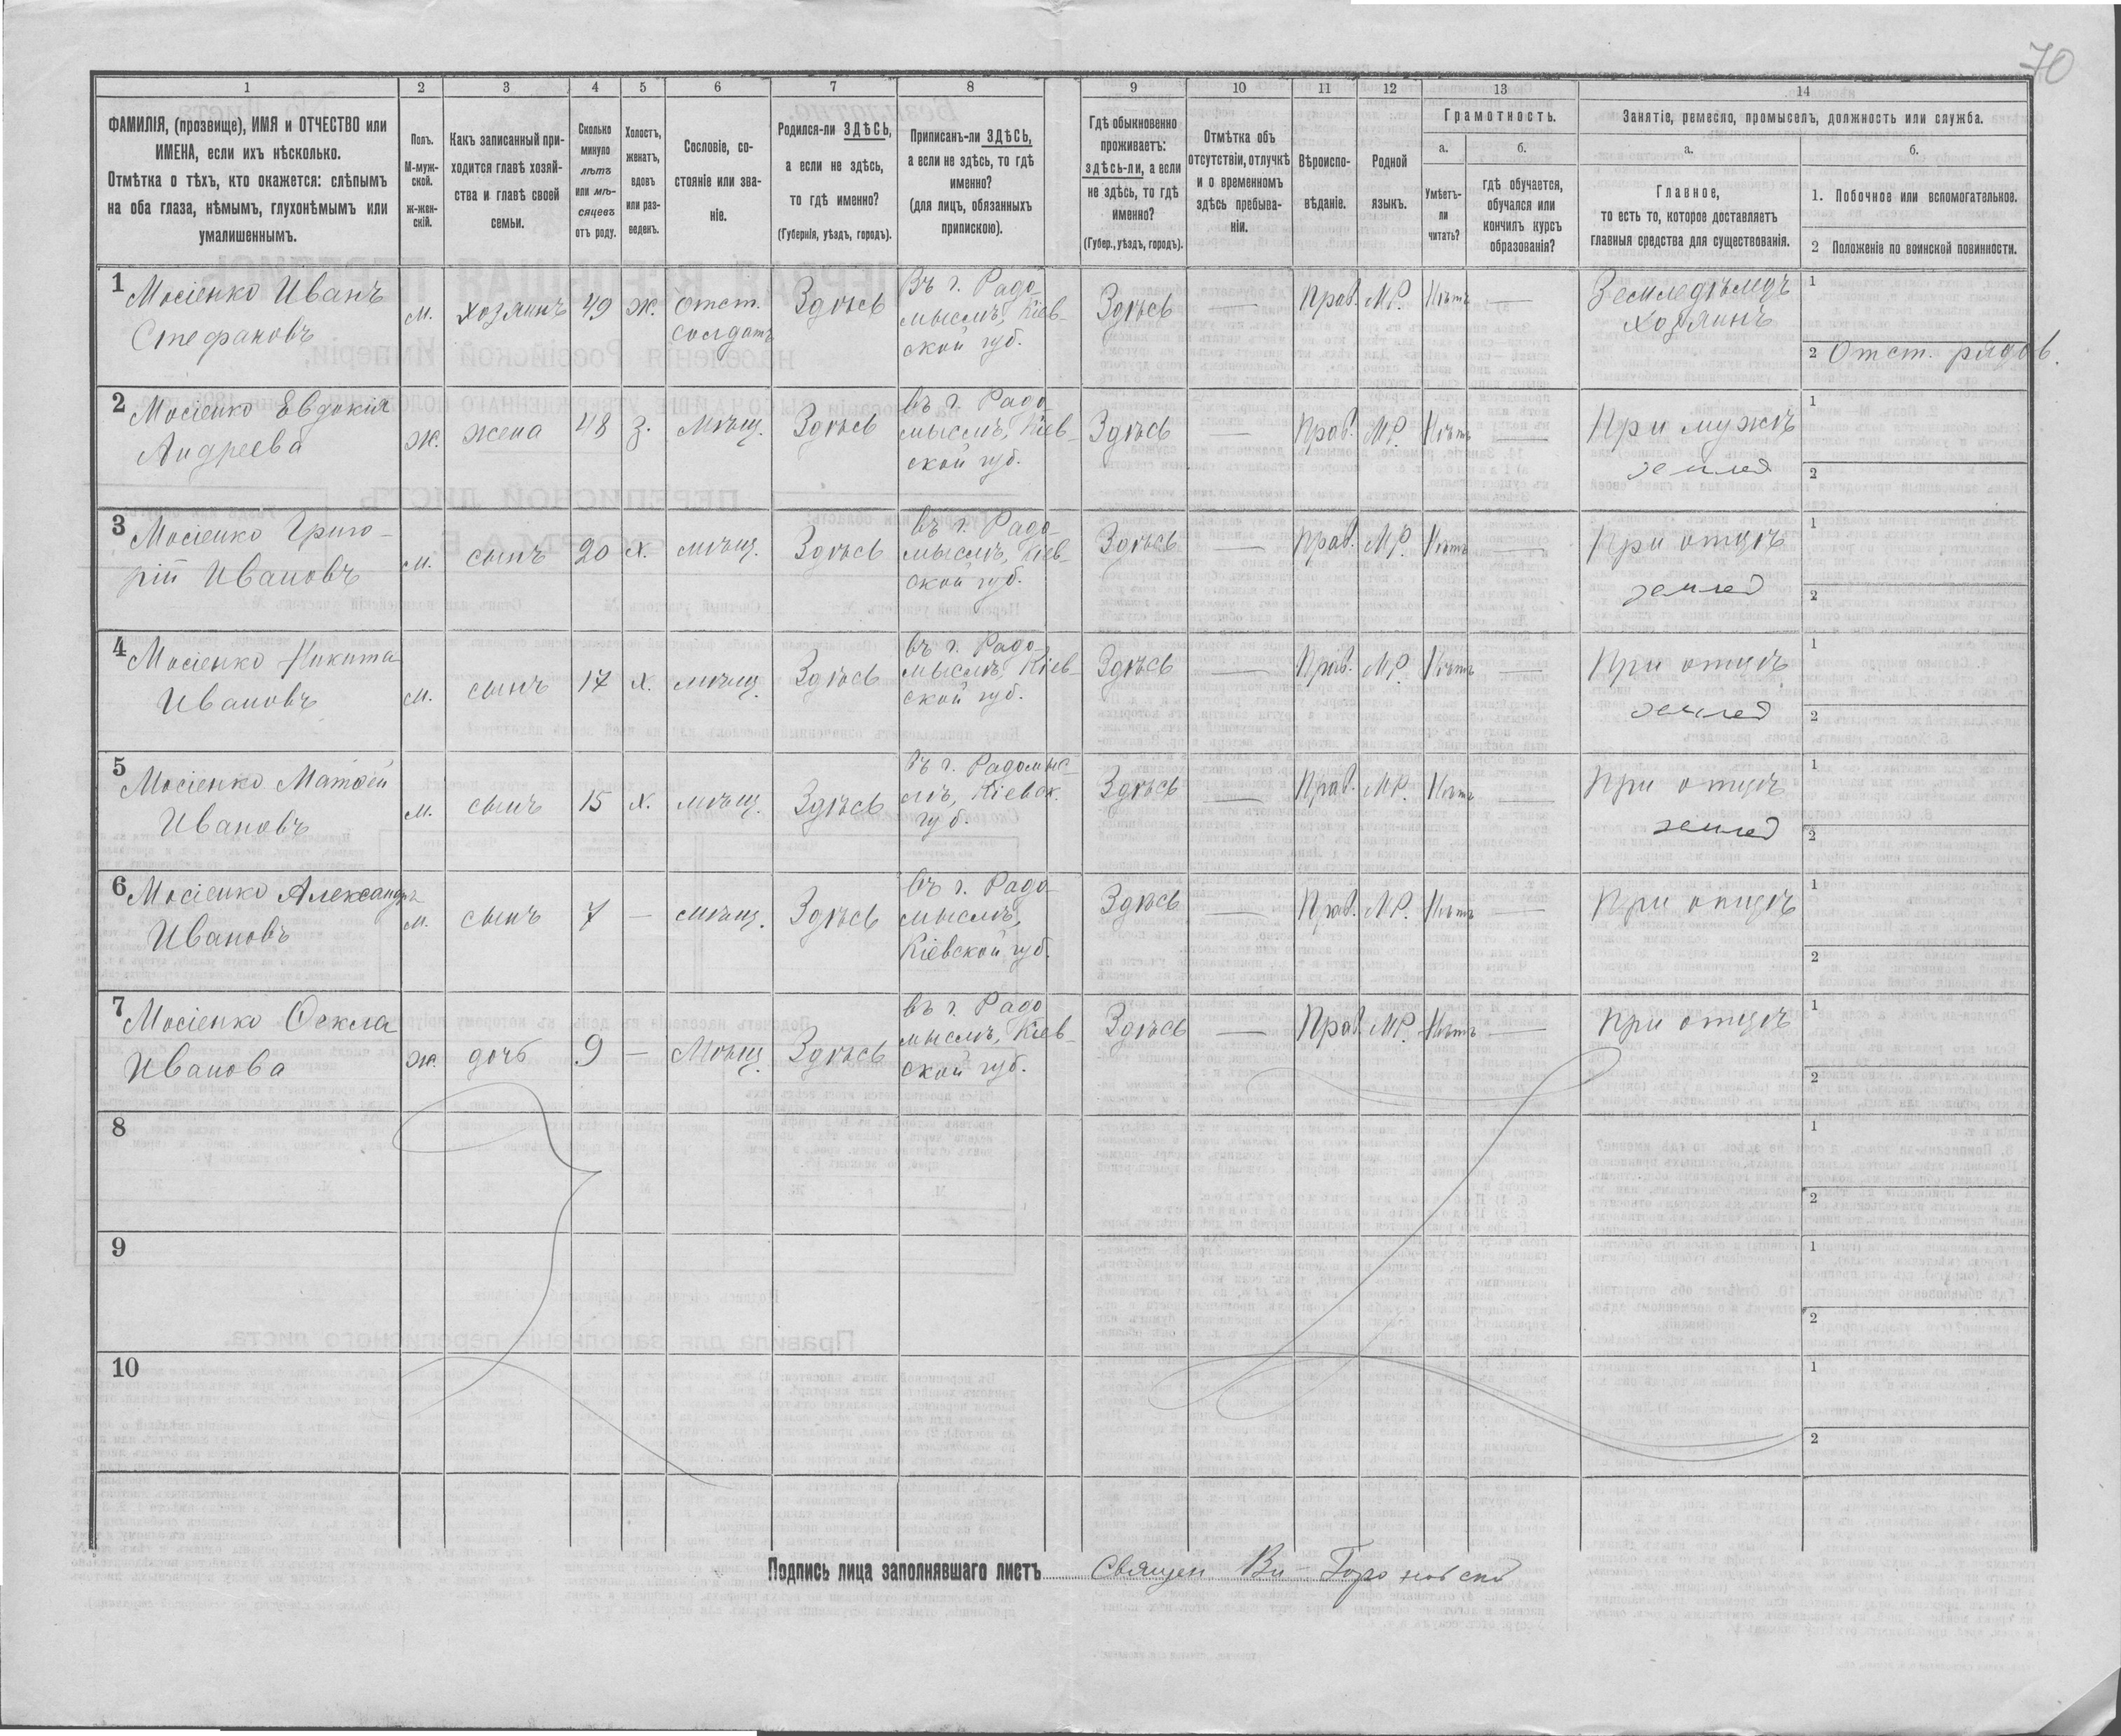 70
1 2 3 4 5 6 7 8 9 10 11 12 13 14
ФАМИЛІЯ, (прозвище), ИМЯ и ОТЧЕСТВО или
ИМЕНА, если ихъ нѣсколько.
Отмѣтка о тѣхъ, кто окажется: слѣпымъ
на оба глаза, нѣмымъ, глухонѣмымъ или
умалишеннымъ.
Полъ.
М-муж-
ской.
ж-жен-
скій.
Какъ записанный при-
ходится главѣ хозяй-
ства и главѣ своей
семьи.
Сколько
минуло
лѣтъ
или мѣ-
сяцевъ
отъ роду.
Холостъ,
женатъ,
вдовъ
или раз-
веденъ.
Сословіе, со-
стояніе или зва-
ніе.
Родился-ли ЗДѢСЬ,
а если не здѣсь,
то гдѣ именно?
(Губернія, уѣздъ, городъ).
Приписанъ-ли ЗДѢСЬ,
а если не здѣсь, то гдѣ
именно?
(для лицъ, обязанныхъ
припискою).
Гдѣ обыкновенно
проживаетъ:
здѣсь-ли, а если
не здѣсь, то гдѣ
именно?
(Губер., уѣздъ, городъ).
Отмѣтка объ
отсутствіи, отлучкѣ
и о временномъ
здѣсь пребыва-
ніи.
Вѣроиспо-
вѣданіе.
Родной
языкъ.
Грамотность.
а.
Умѣетъ-
ли
читать?
б.
гдѣ обучается,
обучался или
кончилъ курсъ
образованія?
Занятіе, ремесло, промыселъ, должность или служба.
а.
Главное,
то есть то, которое доставляетъ
главныя средства для существованія.
б.
1. Побочное или вспомогательное.
2 Положеніе по воинской повинности.
1 Мосіенко Иванъ
Стефановъ
м. хозяинъ 49 ж. отст.
солдатъ
Здѣсь
Въ г. Радо
мыслѣ, Кіев-
ской губ.
Здѣсь — Прав. М.Р. Нѣтъ —
Земледѣлецъ
хозяинъ
1
2 Отст. рядов.
2 Мосіенко Евдокія
Андреева
ж. жена 48 з. мѣщ. Здѣсь
въ г. Радо
мыслѣ, Кіев-
ской губ.
Здѣсь — Прав. М.Р. Нѣтъ —
При мужѣ
землед
1
2
3 Мосіенко Григо-
рій Ивановъ
м. сынъ 20 х. мѣщ. Здѣсь
въ г. Радо-
мыслѣ, Кіев-
ской губ.
Здѣсь — Прав. М.Р. Нѣтъ —
При отцѣ
землед
1
2
4 Мосіенко Никита
Ивановъ
м. сынъ 17 х. мѣщ. Здѣсь
въ г. Радо-
мыслѣ, Кіев-
ской губ.
Здѣсь — Прав. М.Р. Нѣтъ —
При отцѣ
землед
1
2
5 Мосіенко Матѳей
Ивановъ
м. сынъ 15 х. мѣщ. Здѣсь
Въ г. Радомыс-
лѣ, Кіевск.
губ.
Здѣсь — Прав. М.Р. Нѣтъ —
При отцѣ
землед
1
2
6 Мосіенко Александръ
Ивановъ
м. сынъ 7 — мѣщ. Здѣсь
въ г. Радо-
мыслѣ,
Кіевской губ.
Здѣсь — Прав. М.Р. Нѣтъ —
При отцѣ
1
2
7 Мосіенко Ѳекла
Иванова
ж. дочь 9 — Мѣщ. Здѣсь
въ г. Радо
мыслѣ, Кіев-
ской губ.
Здѣсь — Прав. М.Р. Нѣтъ —
При отцѣ
1
2
8
1
2
9
1
2
10
1
2
Подпись лица заполнявшаго листъ Священ